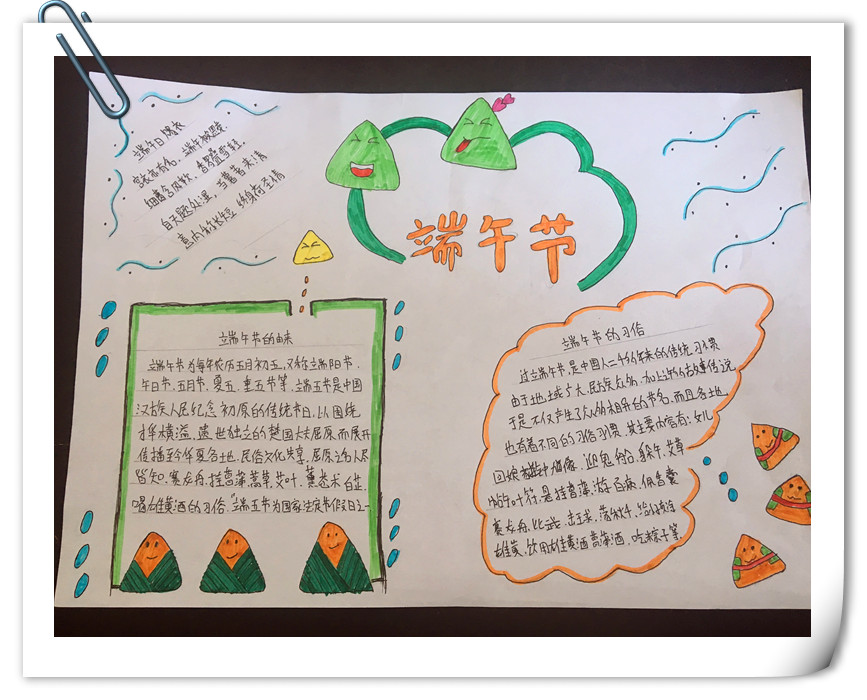 端午日赐衣
宫衣亦有名，端午被恩荣.
细葛含风软，香罗叠雪轻.
自天题处湿，当暑著来清
意内称长短，终身荷圣情
端午节
端午节的由来
端午节为每年农历五月初五，又称端阳节，
午日节，五月节，夏五，重五节等，端五节是中国
汉族人民纪念 初原的传统节日，以围绕
才华横溢，遗世独立的楚国大夫屈原而展开
传播至今华夏各地，民俗文化共享，屈原之名人尽
皆知，赛龙舟，挂菖蒲蒿草，艾叶，薰苍术 白芷
喝雄黄酒的习俗，"端五节为国家法定节假日之一
端午节的习俗
过端午节，是中国人二千多年来的传统习惯
由于地域广大，民族众多，加上许多故事传说
于是不仅产生了众多相异的节名，而且各地
也有着不同的习俗习惯，其主要内容有：女儿
回娘家，挂钟馗像，迎鬼船，躲午，艾草
帖午叶符，悬挂菖蒲，游百病，佩香囊
赛龙舟，比武，击球，荡秋千，给小孩涂
雄黄，饮用雄黄酒菖蒲酒，吃粽子等，